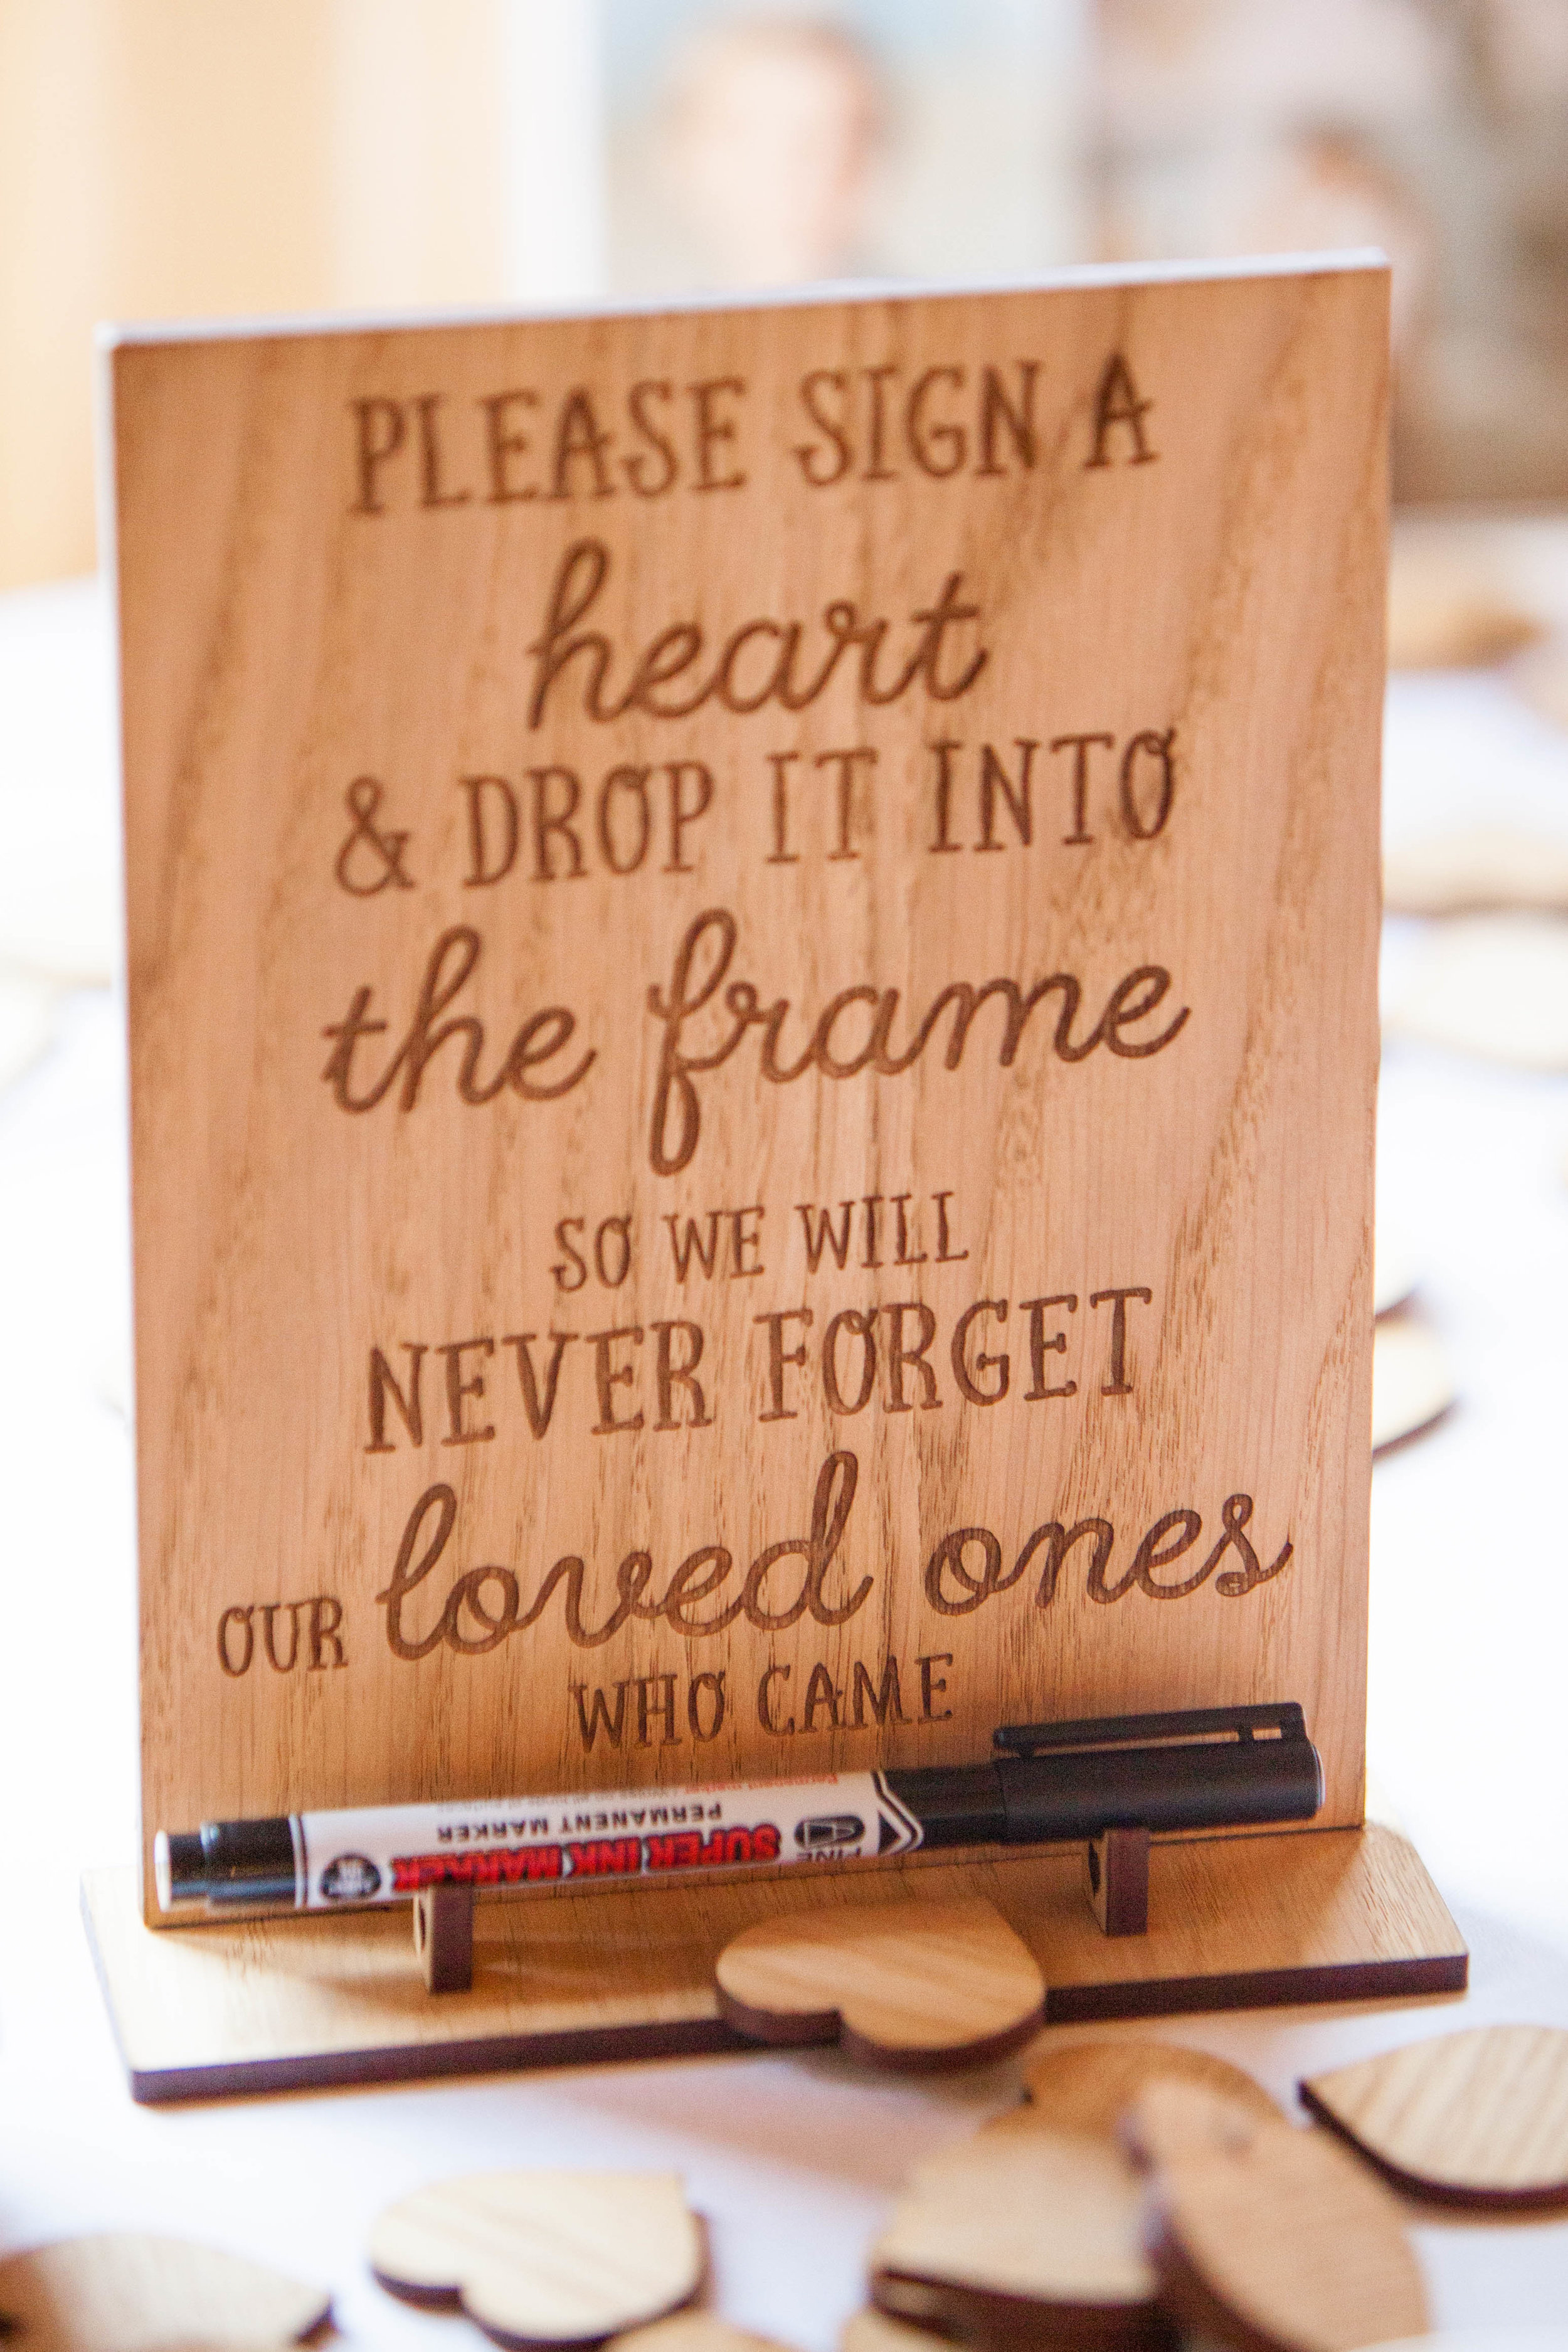 PLEASE SIGN A
heart
& DROP IT INTO
the frame
SO WE WILL
NEVER FORGET
OUR loved ones
WHO CAME
FINE
SUPER INK MARKER
PERMANENT MARKER
Permanent marker